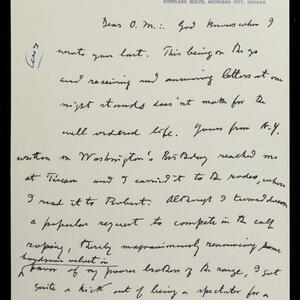 DUNELAND BEACH, MICHIGAN CITY, INDIANA
Dear O. M.: God knows when I
wrote you last. This being on the go
and receiving and answering letters at one
night stands doesn't make for the
well ordered life. Yours from N.Y.
written on Washington's Birthday reached me
at Tucson and I carried it to the rodeo, where
I read it to Robert. Although I turned down
a popular request to compete in the calf
roping, thereby magnanimously renouncing some
in
favor of my poorer brothers of the range, I got
quite a kick out of being a spectator for a